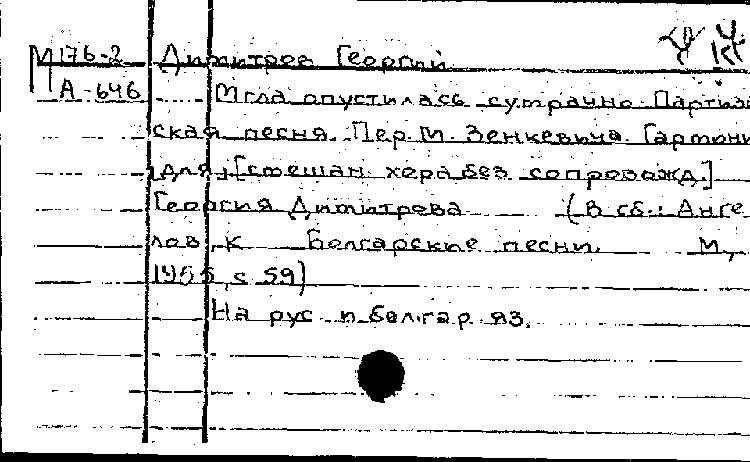 М176-2 Димитров Георгий
А-646 Мгла опустилась сутрачно. Партизан
ская песня. Пер. М. Зенкевича. Гармони
для [смешан. хора без сопровожд.]
Георгия Димитрова (В сб.: Анге
лов, К Болгарские песни. М.,
1955, с 59)
На рус и болгар. яз.